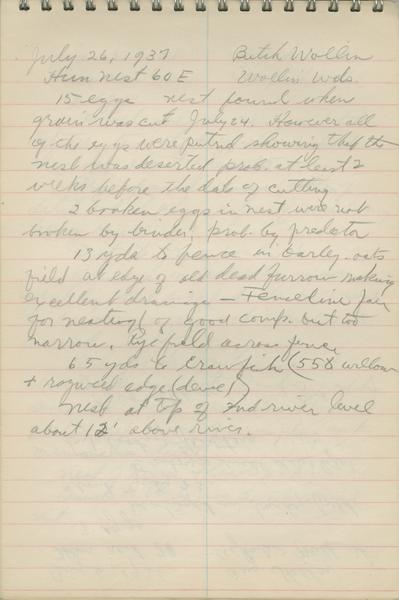 July 26, 1937 Butch Wollin
Hun Nest 60 E Wollin Wds.
15 eggs nest found when
grain was cut July 24. However all
of the eggs were putrid showing that the
nest was deserted prob. at least 2
weeks before the date of cutting
2 broken eggs in nest were not
broken by binder, prob. by predator
13 yds to fence in barley-oats
field at edge of old dead furrow making
excellent drainage - Fenceline fair
for nesting of good comp. but too
narrow. Rye field across fence
65 yds to Crawfish (55% willow
+ ragweed edge (dense)
Nest at top of 2nd river level
about 12' above river.